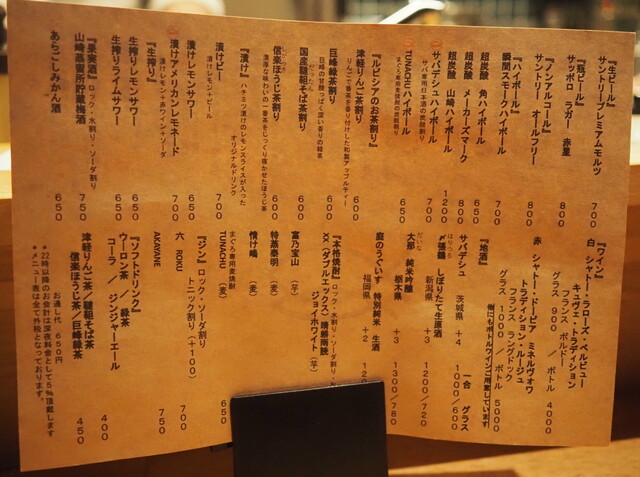 『生ビール』
サントリープレミアムモルツ 700
『瓶ビール』
サッポロ ラガー 赤星 800
『ノンアルコール』
サントリー オールフリー 600
『ハイボール』
瞬間スモークハイボール 700
超炭酸 角ハイボール 650
超炭酸 メーカーズマーク 800
超炭酸 山崎ハイボール 1200
サバデシュハイボール 700
サバ専用日本酒の炭酸割り
TUNACHUハイボール 650
まぐろ専用麦焼酎の炭酸割り
『ルピシアのお茶割り』
津軽りんご茶割り 600
りんごで香りを付けした和製アップルティー
巨峰緑茶割り 600
巨峰の甘酸っぱく深い香りの緑茶
国産韃靼そば茶割り 600
信楽ほうじ茶割り 600
濃厚な味わいの一番茶をじっくり焙かせたほうじ茶
『漬け』ハチミツ漬けのレモンスライスが入った
オリジナルドリンク
漬けビー 700
漬けレモン+ビール
漬けレモンサワー 650
漬けアメリカンレモネード 700
漬けレモン+赤ワイン・ソーダ
『生搾り』
生搾りレモンサワー 650
生搾りライムサワー 650
『果実酒』ロック・水割り・ソーダ割り
山崎蒸留所貯蔵梅酒 750
あらごしみかん酒 650
『ワイン』
白 シャトー・ラローズ・ベルビュー
キュヴェ・トラディション
フランス ボルドー
グラス 900 / ボトル 4000
赤 シャトー・ドーピア ミネルヴォワ
トラディション・ルージュ
フランス ラングドック
グラス 1000 / ボトル 5000
他にもボトルワインご用意しています
『地酒』 一合 グラス
サバデシュ 茨城県 +4 1000/600
〆張鶴 しぼりたて生原酒
新潟県 +3 1200/720
大那 純米吟醸
栃木県 +3 1300/780
庭のうぐいす 特別純米 生酒
福岡県 +2 120
『本格焼酎』ロック・水割り・ソーダ割り・
XX(ダブルエックス)晴耕雨読
ジョイホワイト(芋)
富乃宝山 (芋)
特蒸泰明 (麦)
情け嶋 (麦)
まぐろ専用麦焼酎
TUNACHU (麦) 650
『ジン』ロック・ソーダ割り
トニック割り(+100)
六 ROKU 700
AKAYANE 750
『ソフトドリンク』
ウーロン茶 / 緑茶
コーラ / ジンジャーエール 400
津軽りんご茶/韃靼そば茶
信楽ほうじ茶/巨峰緑茶 450
お通し代 650円
*22時以降のお会計は深夜料金として5%頂戴します
*メニュー表は全て外税となっております。